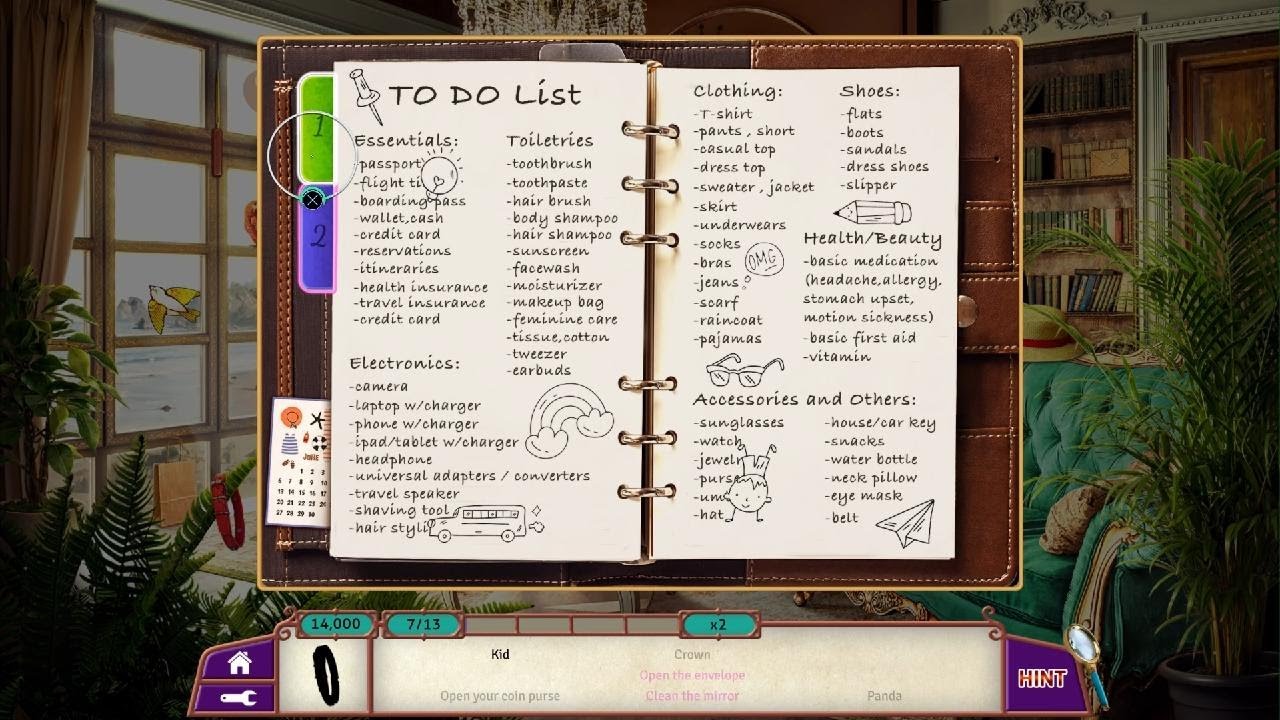 1
2
TO DO List
Essentials:
-passport
-flight
-boarding pass
-wallet,cash
-credit card
-reservations
-itineraries
-health insurance
-travel insurance
-credit card
Toiletries
-toothbrush
-toothpaste
-hair brush
-body shampoo
-hair shampoo
-sunscreen
-facewash
-moisturizer
-makeup bag
-feminine care
-tissue,cotton
-tweezer
-earbuds
Electronics:
-camera
-laptop w/charger
-phone w/charger
-ipad/tablet w/charger
-headphone
-universal adapters / converters
-travel speaker
-shaving tool
-hair
Clothing:
-T-shirt
-pants , short
-casual top
-dress top
-sweater , jacket
-skirt
-underwears
-socks
-bras
-jeans
-scarf
-raincoat
-pajamas
OMG
Shoes:
-flats
-boots
-sandals
-dress shoes
-slipper
Health/Beauty
-basic medication
(headache,allergy,
stomach upset,
motion sickness)
-basic first aid
-vitamin
Accessories and Others:
-sunglasses
-watch
-hat
-house/car key
-snacks
-water bottle
-neck pillow
-eye mask
-belt
JUNE
1 2 3
6 7 8 9 10
13 14 15 16 17
20 21 22 23 24
27 28 29 30
14,000
7/13
x2
Kid
Crown
Open the envelope
Open your coin purse
Clean the mirror
Panda
HINT